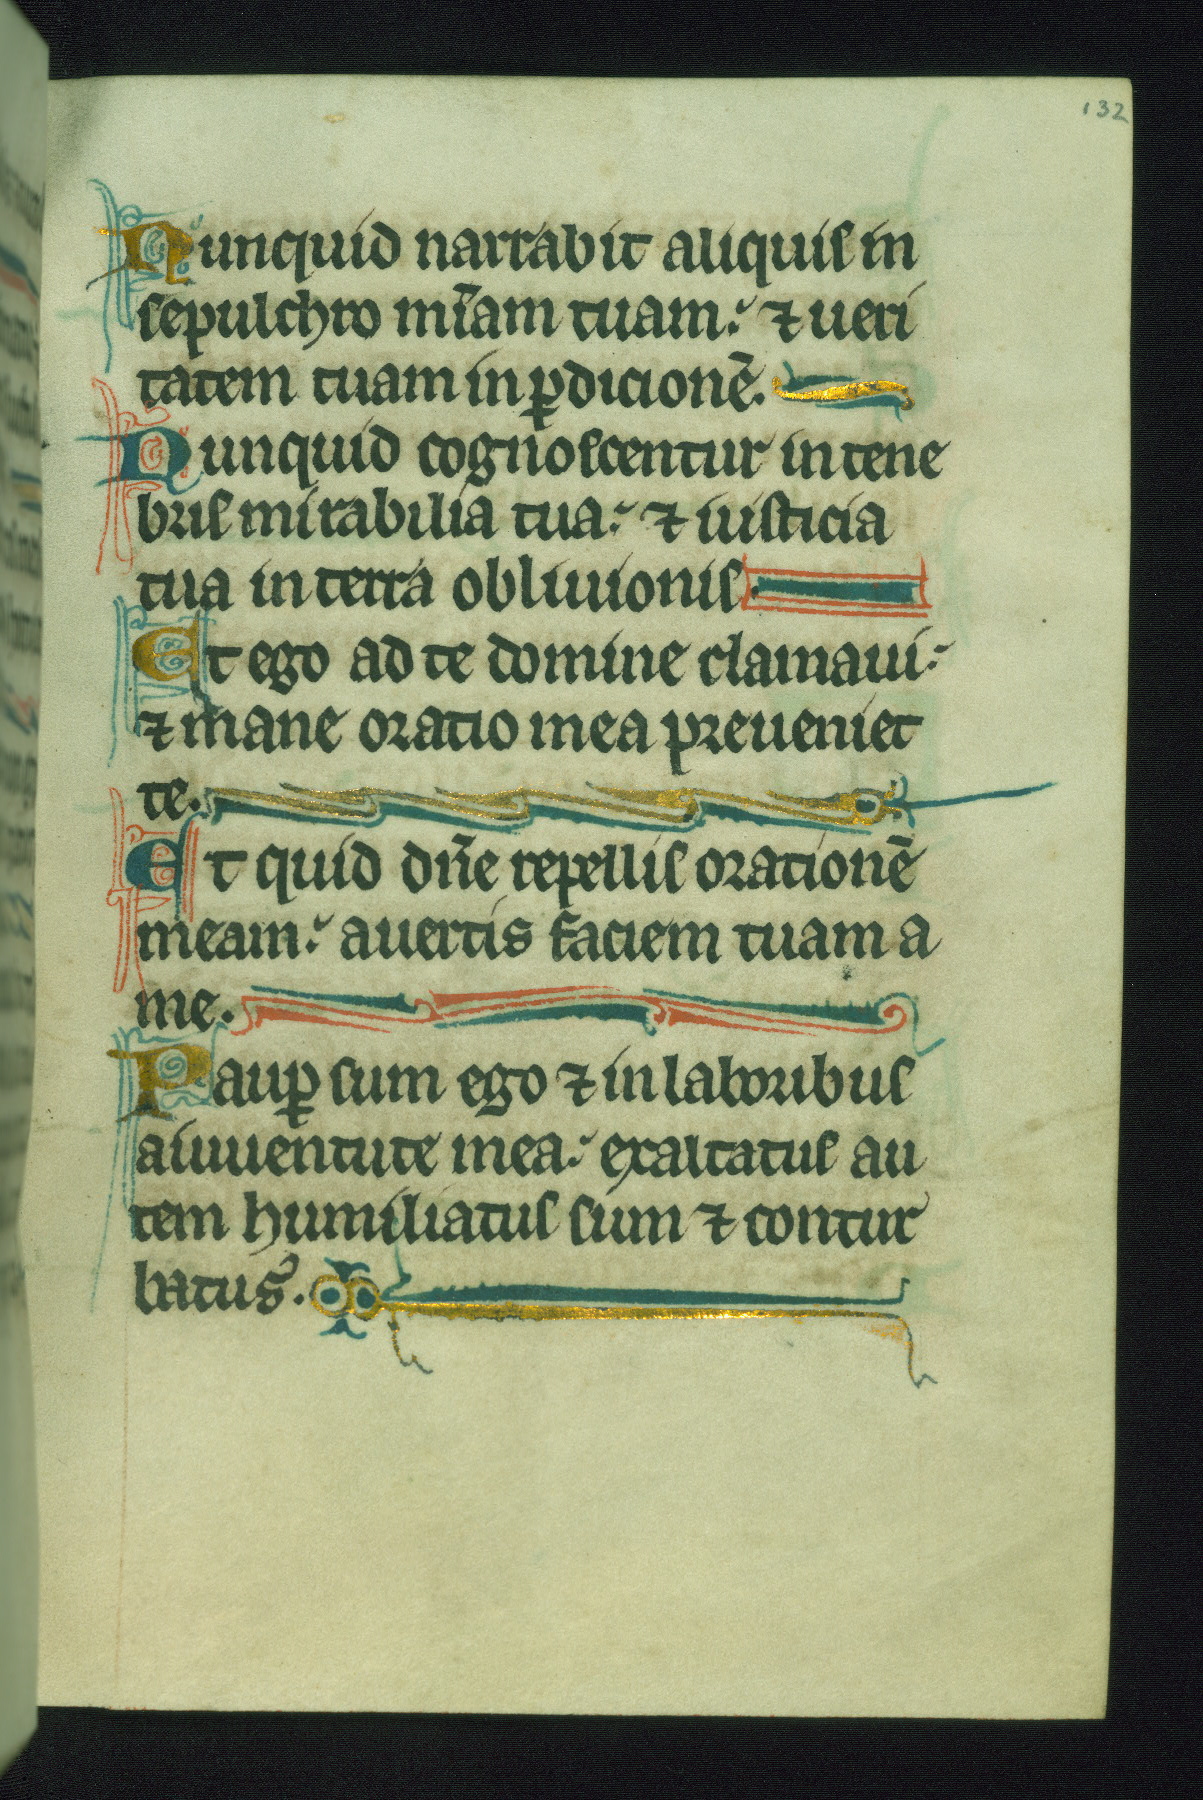 132
Nunquid narrabit aliquis in
sepulchro mīam tuam: ⁊ ueri
tatem tuam in ꝑdicionē.
Nunquid cognoscentur in tene
bris mirabilia tua: ⁊ iusticia
tua in terra obliuionis.
Et ego ad te domine clamaui:
⁊ mane oratio mea preueniet
te.
Et quid dn̄e repellis orationē
meam: auertis faciem tuam a
me.
Pauꝑ sum ego ⁊ in laboribus
aiuuentute mea: exaltatus au
tem humiliatus sum ⁊ contur
batus.